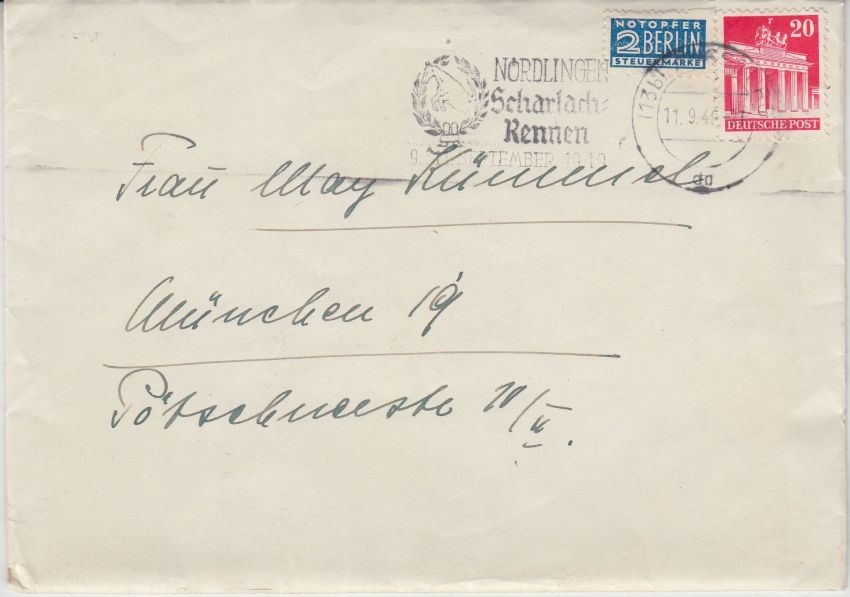 NOTOPFER
2 BERLIN
STEUERMARKE
20
DEUTSCHE POST
NÖRDLINGEN
Scharlach-
Rennen
SEPTEMBER 1949
(13b)
11.9.49
da
Frau May Kümmel
München 19
Pötschnerstr 10/II.